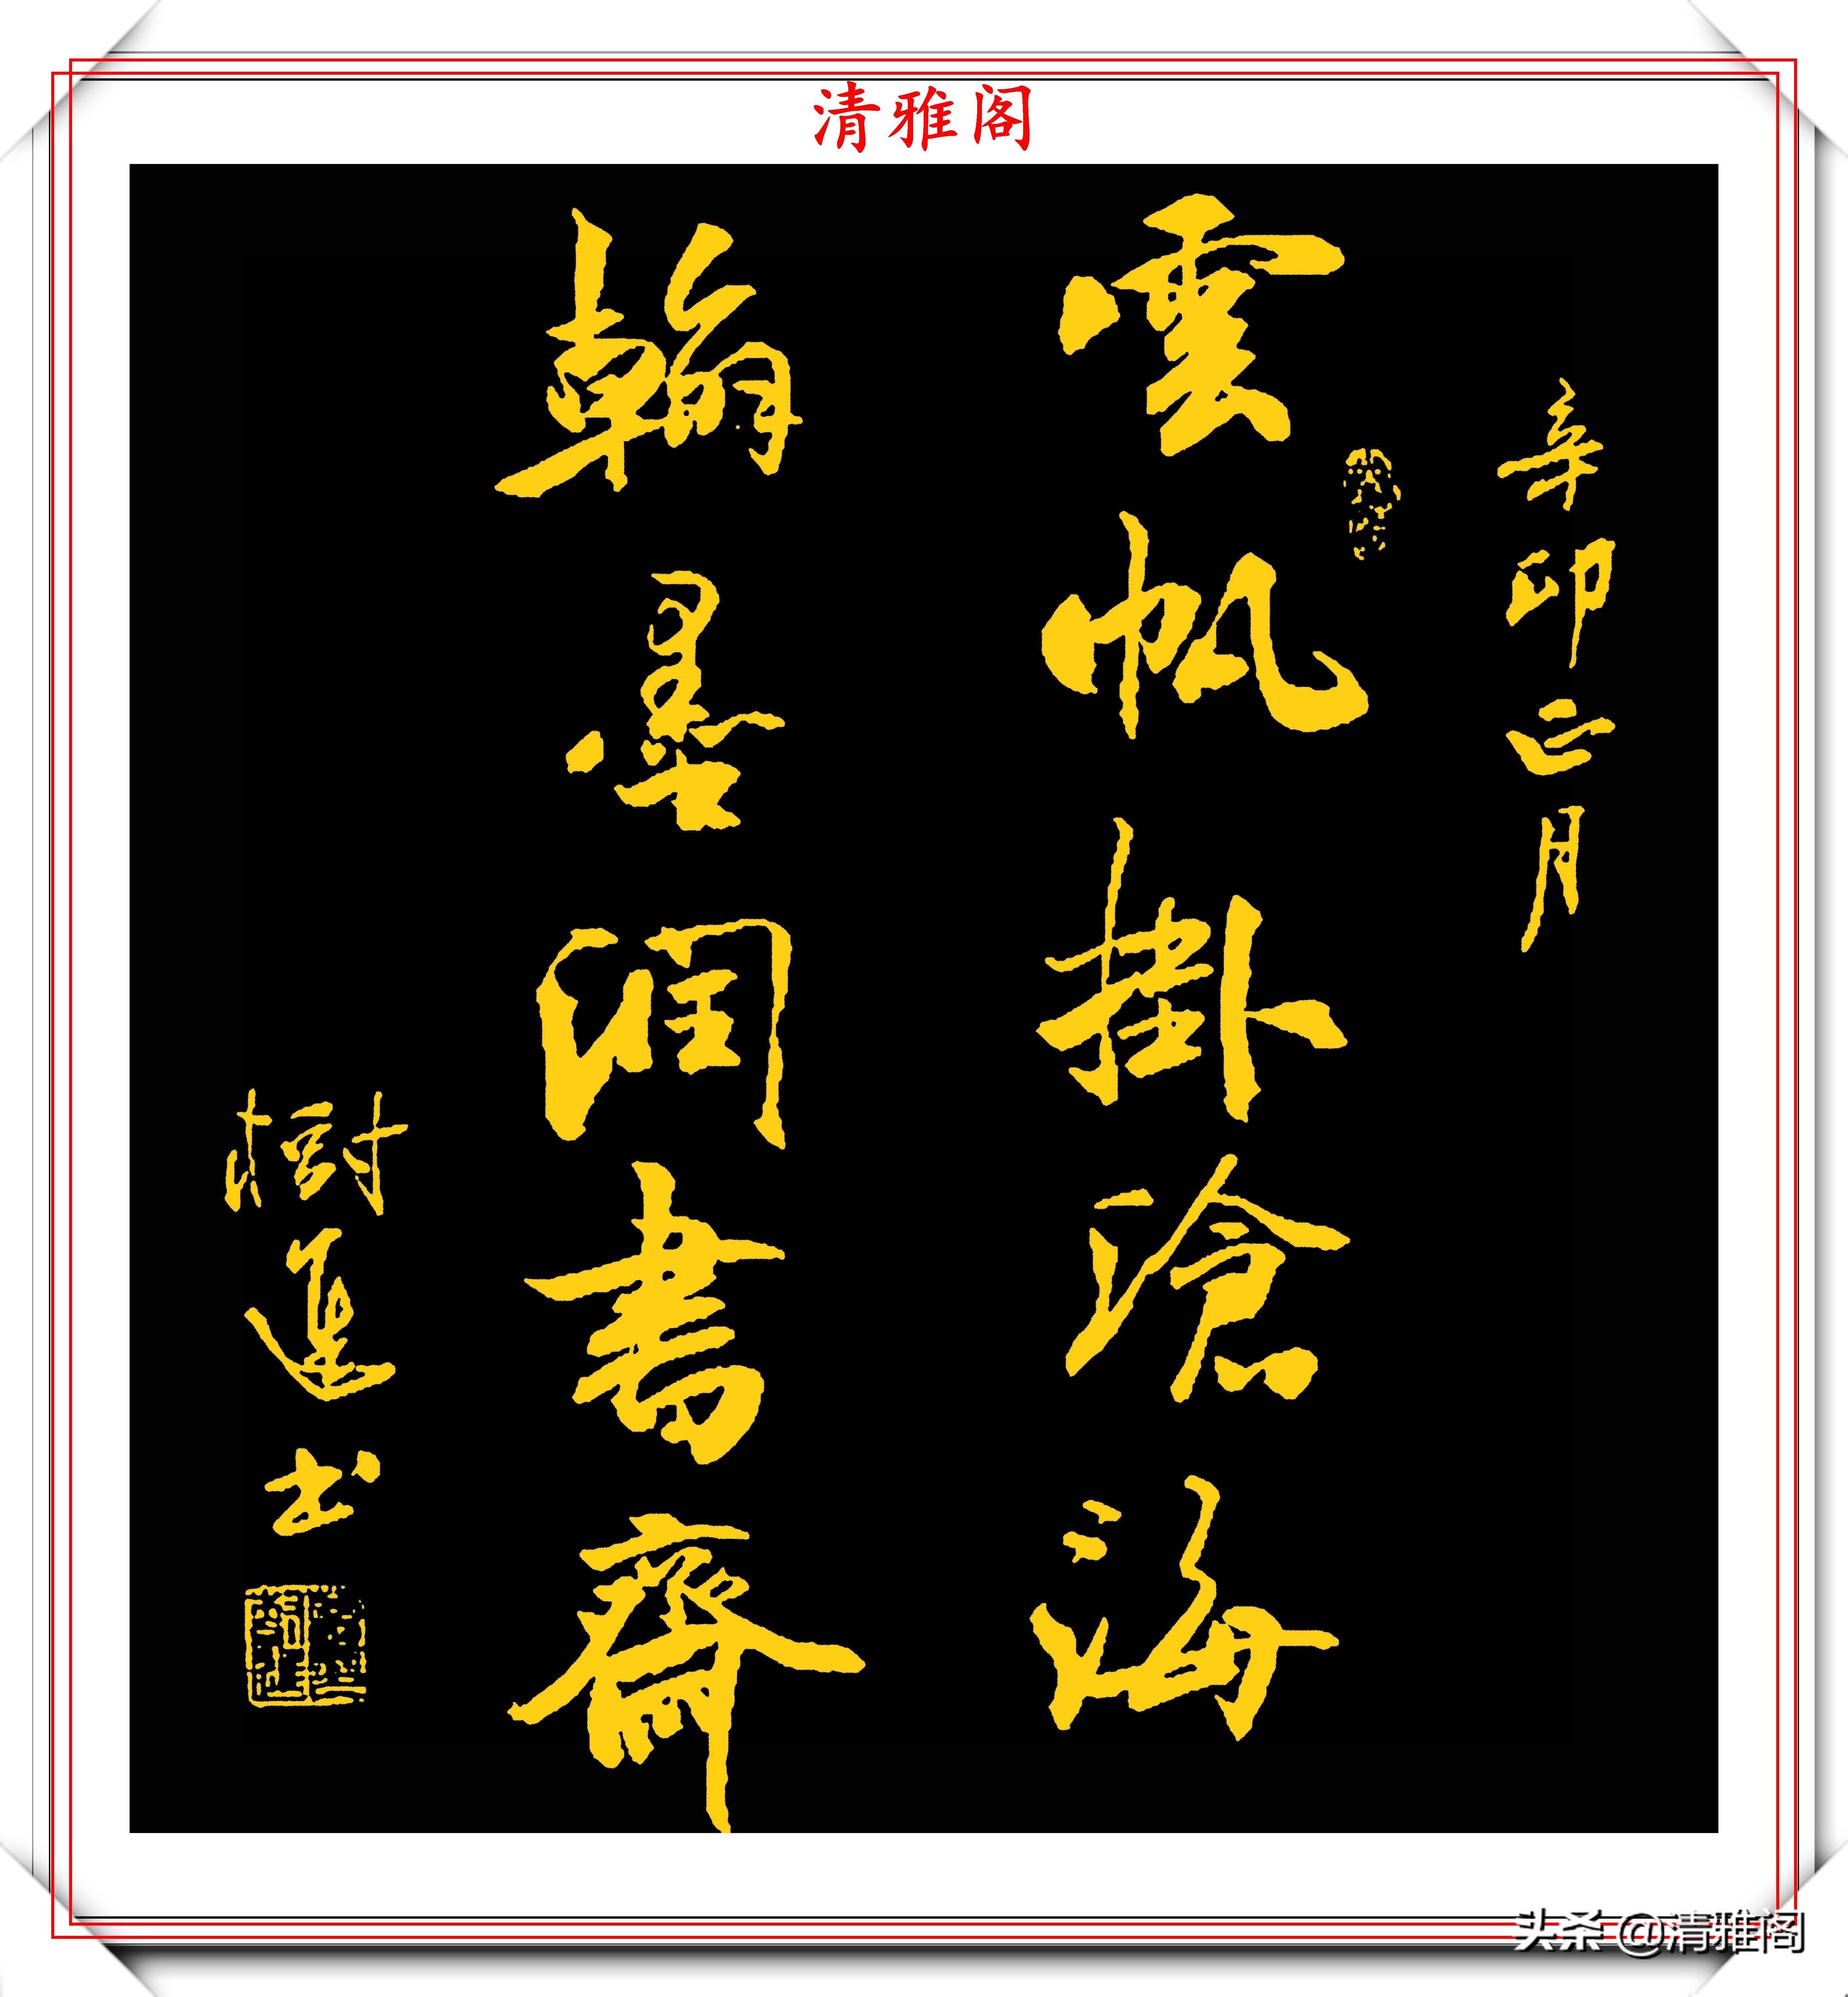 清雅阁
辛卯正月
雲帆掛滄海
翰墨潤書齋
樹進书
头条 @清雅阁